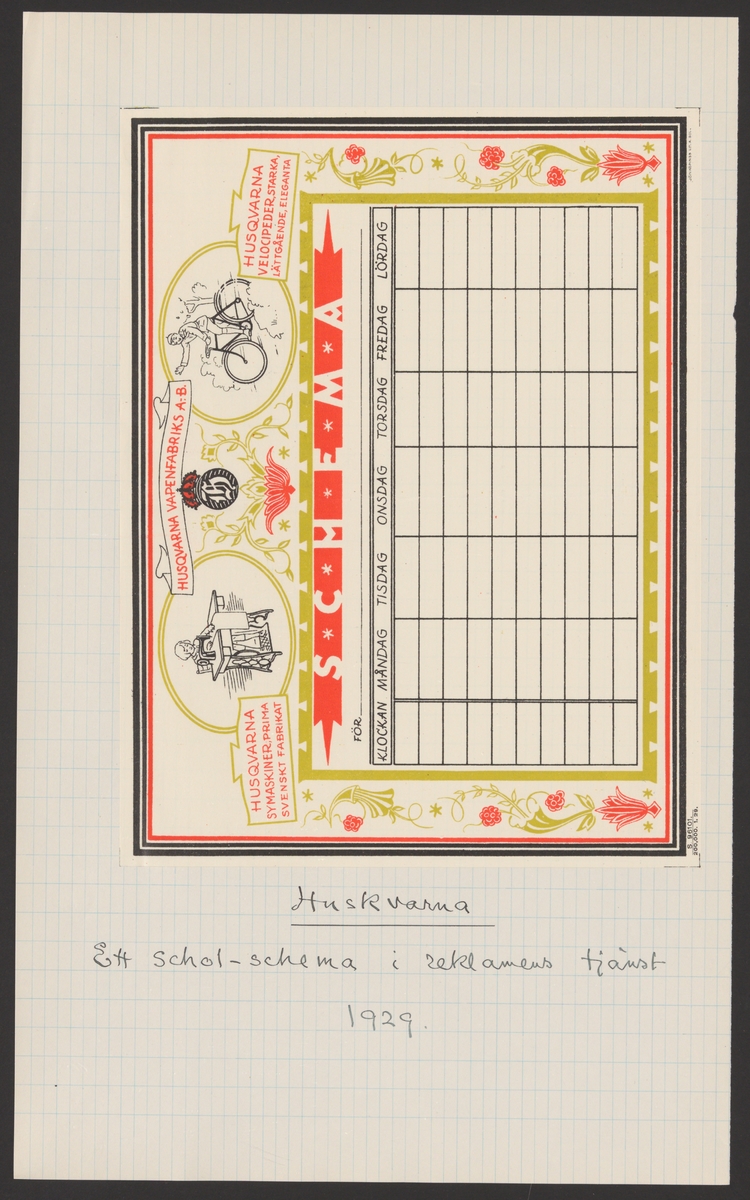 HUSQVARNA
SYMASKINER, PRIMA
SVENSKT FABRIKAT
HUSQVARNA VAPENFABRIKS A.-B.
HUSQVARNA
VELOCIPEDER, STARKA,
LÄTTGÅENDE, ELEGANTA
S*C*H*E*M*A
FÖR
KLOCKAN MÅNDAG TISDAG ONSDAG TORSDAG FREDAG LÖRDAG
S. 96101.
200,000. 1. 29.
Huskvarna
Ett schol-schema i reklamens tjänst
1929.